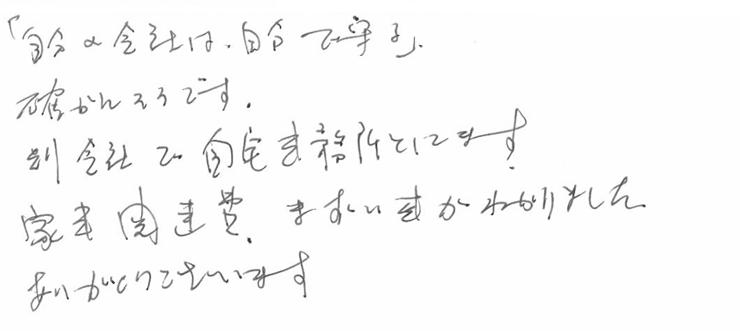 「自分の会社は、自分で守る」、
確かにそうです。
別会社で自宅事務所としてます。
家事関連費、まずい事がわかりました
ありがとうございます